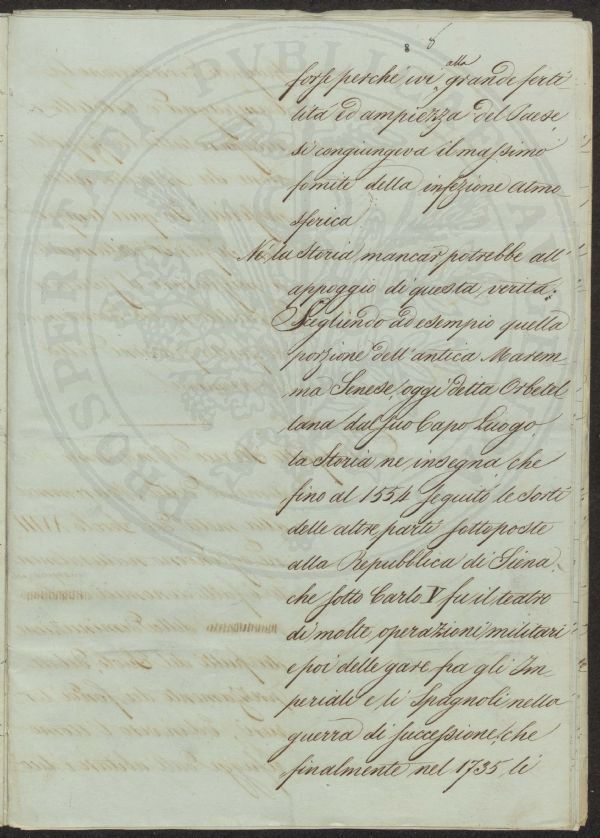 8 8
forse perché ivi alla grande ferti
lità ed ampiezza del Paese
si congiungeva il massimo
fomite della infezione atmo
sferica
Nè la Storia mancar potrebbe all'
appoggio di questa verità.
Scegliendo ad esempio quella
porzione dell'antica Marem-
ma Senese, oggi detta Orbetel
lana dal suo Capo Luogo,
la Storia ne insegna che
fino al 1554 seguitò le sorti
delle altre parti sottoposte
alla Repubblica di Siena,
che sotto Carlo V fu il teatro
di molte operazioni militari
e poi delle gare fra gli Im-
periali e li Spagnoli nella
guerra di successione, che
finalmente nel 1735, li
PROSPERITATI PVBLICAE AVGENDAE